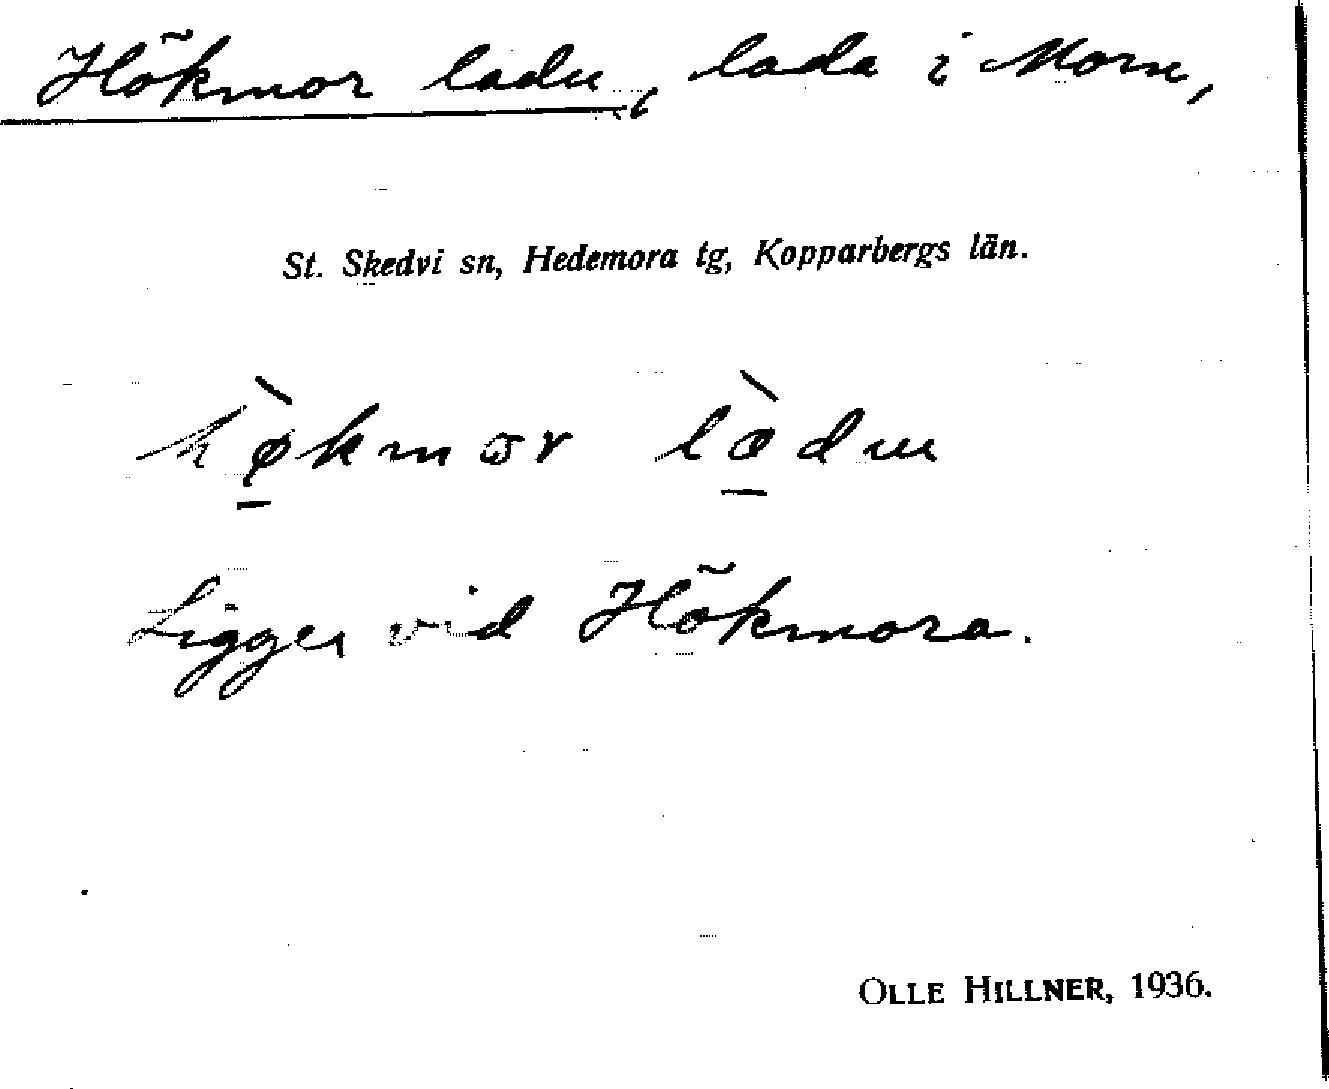 Hökmor ladu, lada i Morn,
St. Skedvi sn, Hedemora tg, Kopparbergs län.
hø̀kmɔr lòdu
Ligger vid Hökmora.
OLLE HILLNER, 1936.